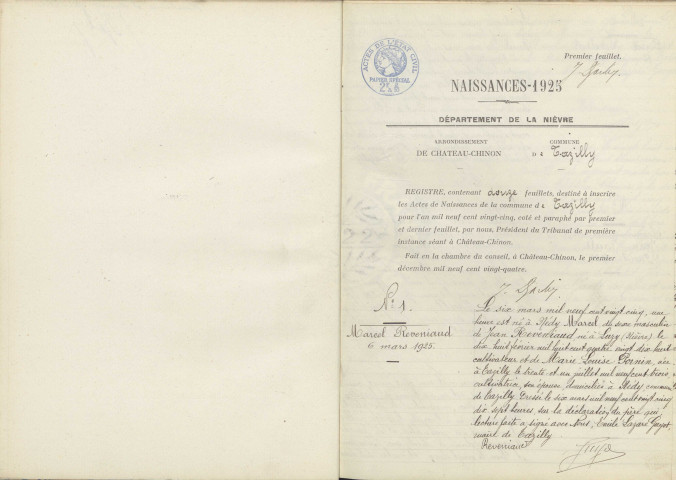 ACTES DE L'ETAT CIVIL
PAPIER SPECIAL
Premier feuillet,
NAISSANCES-1925
DÉPARTEMENT DE LA NIÈVRE
ARRONDISSEMENT
DE CHATEAU-CHINON
COMMUNE
de Tazilly
REGISTRE, contenant douze feuillets, destiné à inscrire
les Actes de Naissances de la commune de Tazilly
pour l'an mil neuf cent vingt-cinq, coté et paraphé par premier
et dernier feuillet, par nous, Président du Tribunal de première
instance séant à Château-Chinon.
Fait en la chambre du conseil, à Château-Chinon, le premier
décembre mil neuf cent vingt-quatre.
N° 1.
Marcel Reveniaud
6 mars 1925.
Le six mars mil neuf cent vingt cinq, une
heure est né à Rédy Marcel du sexe masculin
de Jean Reveniaud né à Luzy (Nièvre) le
dix huit février mil huit cent quatre vingt dix huit
cultivateur et de Marie Louise née
à Tazilly le trente et un juillet mil neuf cent trois
cultivatrice, son épouse, domiciliés à Rédy, commune
de Tazilly. Dressé le six mars mil neuf cent vingt cinq
dix sept heures, sur la déclaration du père qui,
lecture faite a signé avec Nous, Emile Lazare
maire de Tazilly
Reveniaud